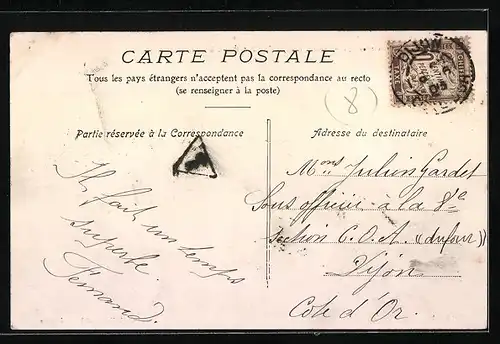 CARTE POSTALE
Tous les pays étrangers n'acceptent pas la correspondance au recto
(se renseigner à la poste)
8
Partie réservée à la Correspondance
Adresse du destinataire
Il fait un temps
superbe.
Fernand.
Mons Julien Gardet
Sous officier à la 8e
section C.O.A. (dufour)
Dijon
Cote d'Or.